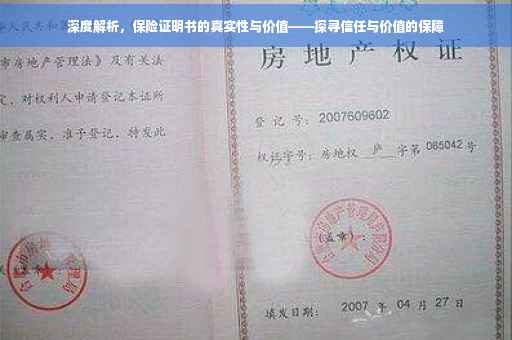 深度解析，保险证明书的真实性与价值——探寻信任与价值的保障
华人民共和国
市房地产管理法》及有关法
定，对权利人申请登记本证所
审查属实，准予登记，特发此
房地产权证
登记号：2007609602
权证字号：房地权 庐 字第 085042 号
房地产管理局
（盖章）：
填发日期：2007 年 04 月 27 日